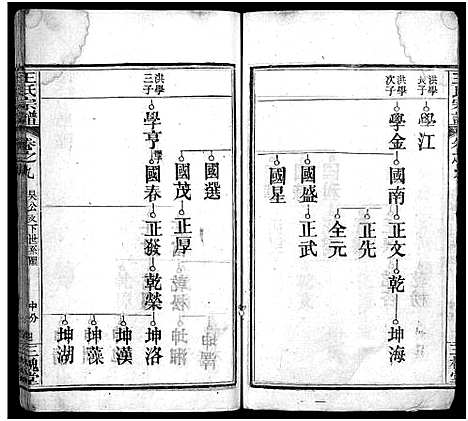 洪學長子
學江
洪學次子
學金
國南
正文
乾
坤海
正先
全元
國盛
正武
國星
洪學三子
學亨
國春
正發
乾榮
坤洛
坤漢
坤藻
坤湖
國茂
正厚
國選
王氏宗譜
卷之九
中分
三槐堂